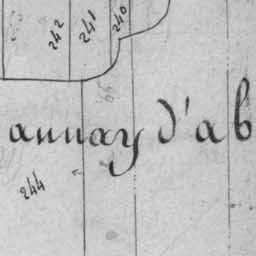 242 241 240
annay d'ab
244